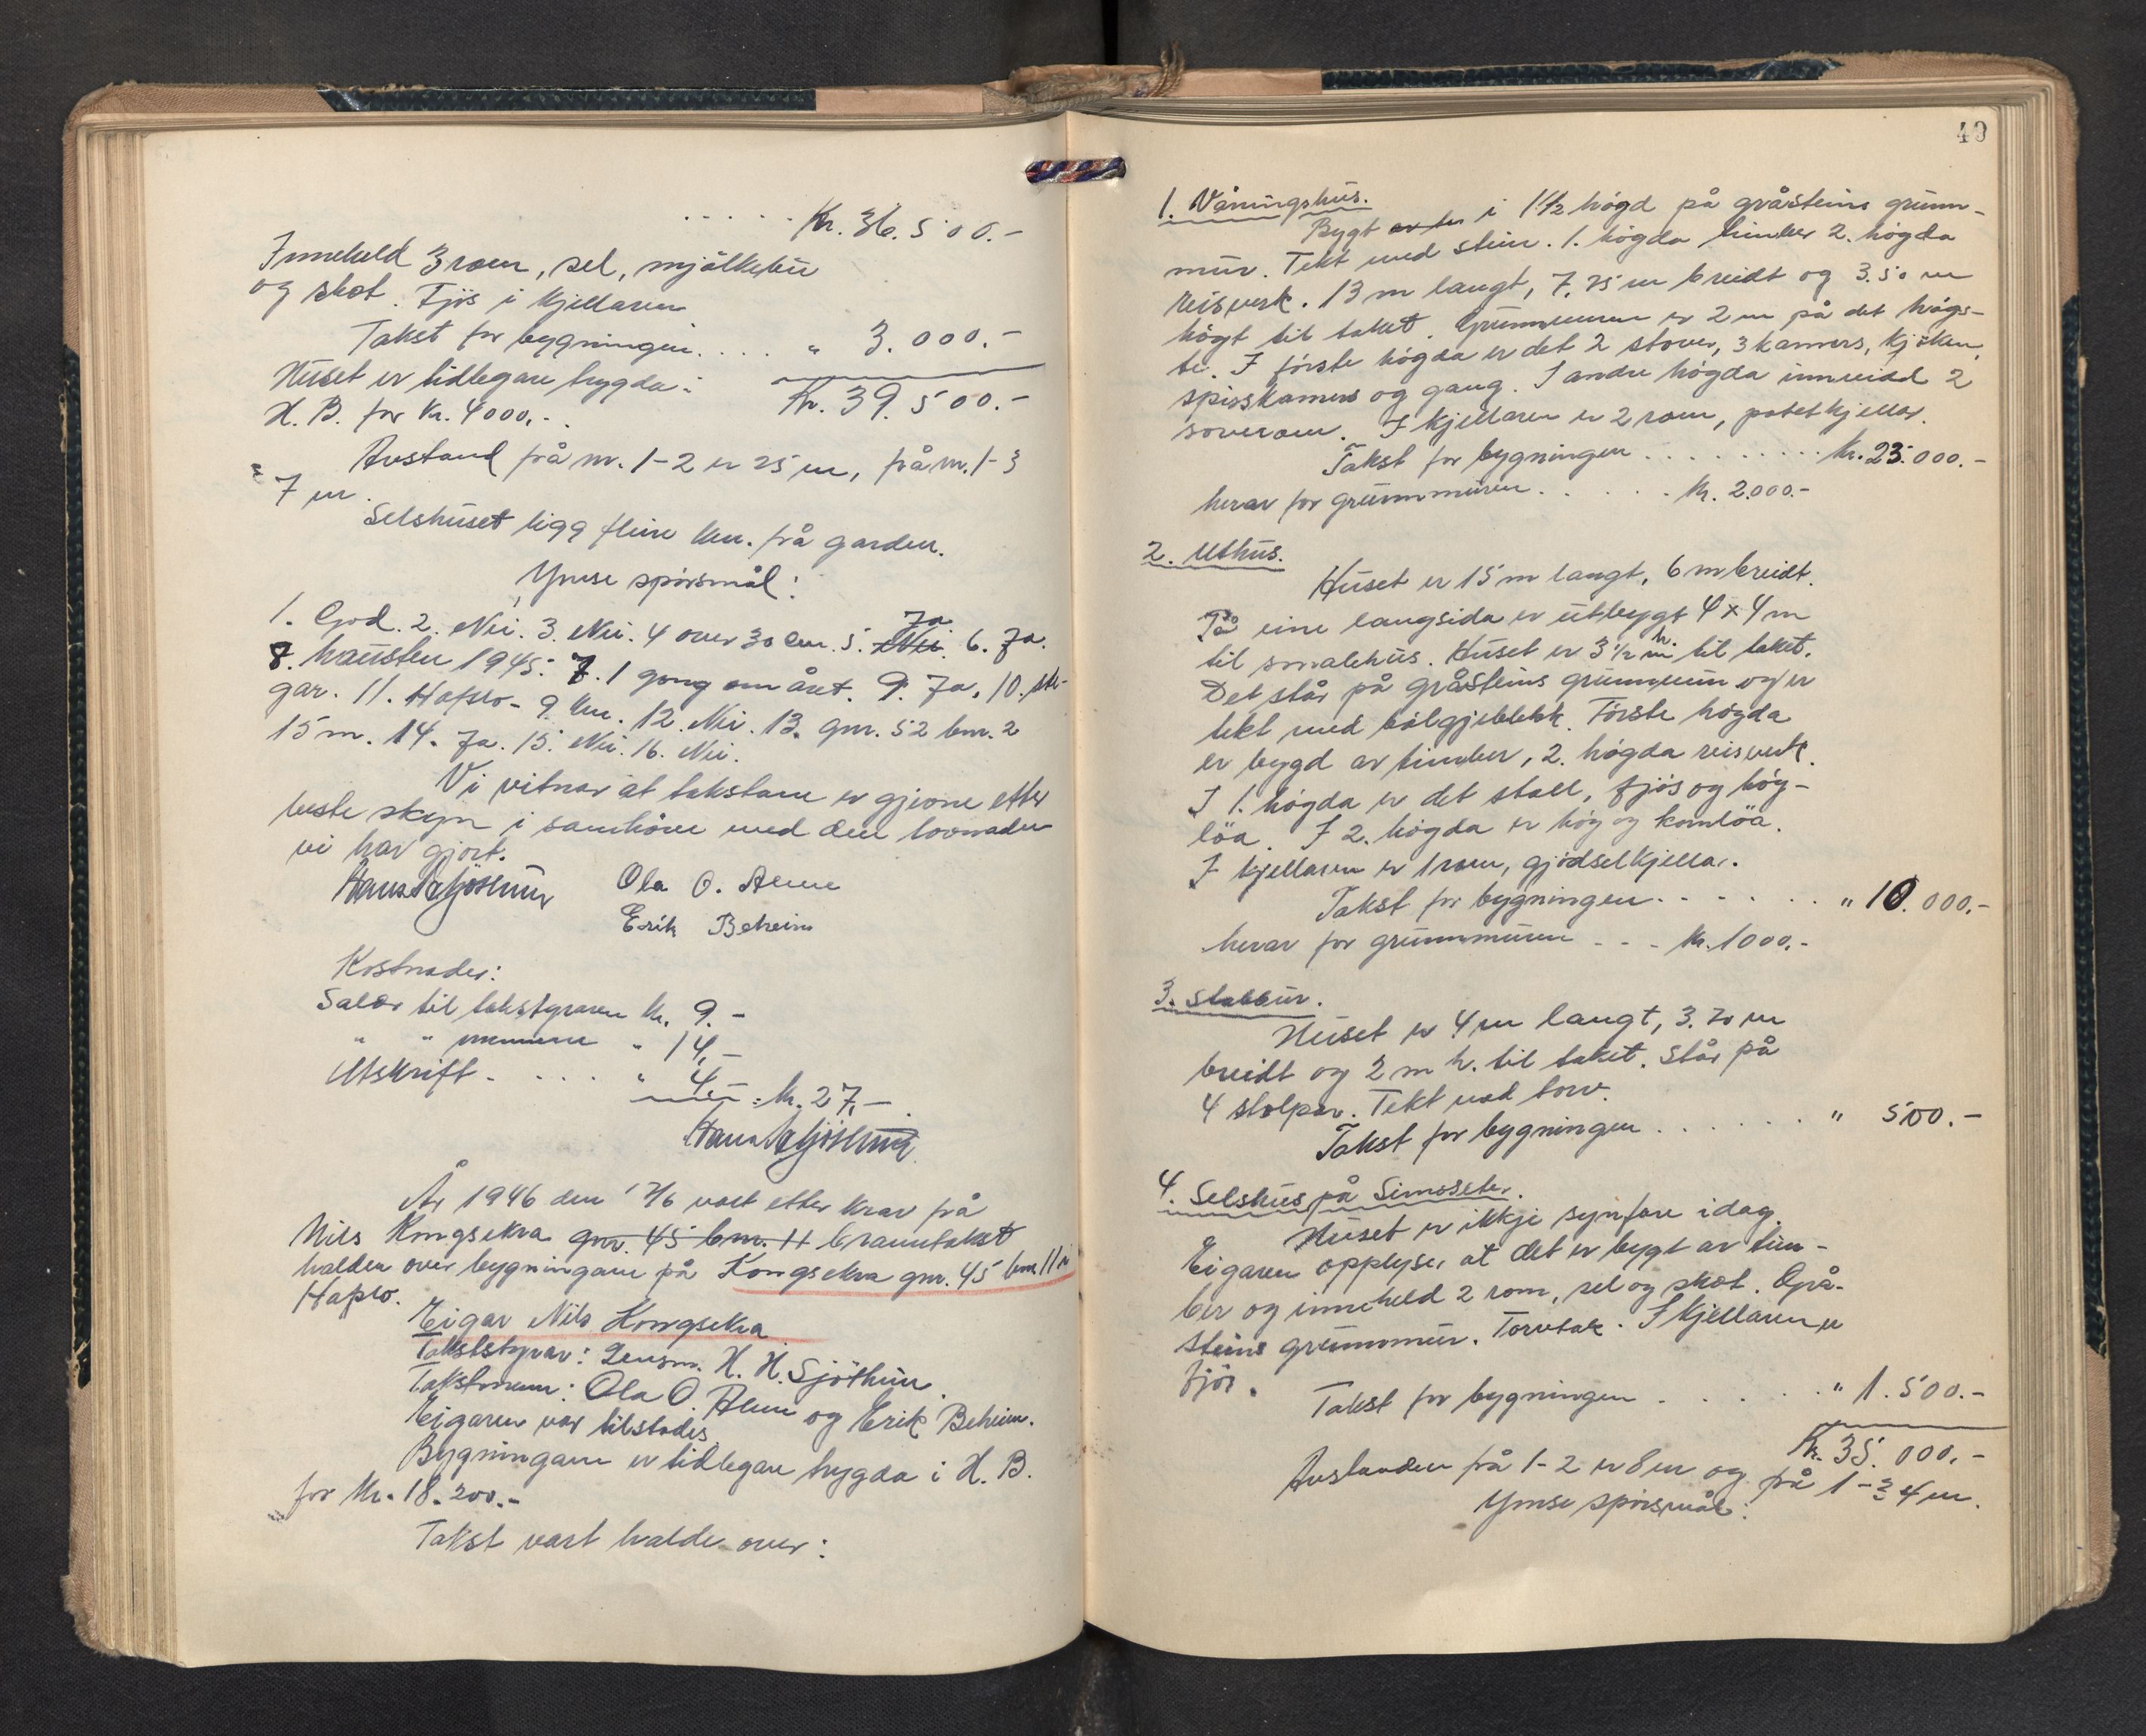 . . . . . Kr. 36.500.-
Inneheld 3 rom, sel, mjölkebu
og skot. Fjös i kjellaren
Takst for bygningen . . . . " 3.000.-
Huset er tidlegare trygda i
Kr. 39.500.-
H. B. for kr. 4000.-.
Avstand frå nr. 1-2 er 25 m, frå nr. 1-3
7 m.
Selshuset ligg fleire km. frå garden.
Ymse spörsmål:
1. God. 2. Nei. 3. Nei. 4 over 30 cm. 5. Nei Ja. 6. Ja.
8. hausten 1945. 7. 1 gong om året. 9. Ja. 10. sti-
gar. 11. Hafslo - 9 km. 12. Nei. 13. gnr. 52 bnr. 2
15 m. 14. Ja. 15. Nei. 16. Nei.
Vi vitnar at takstane er gjevne etter
beste skyn i samhöve med den lovnaden
vi har gjort.
Hans H Sjöthun Ola O. Alme
Erik Beheim
Kostnader:
Salær til takstyraren kr. 9.-
" " mennene " 14.-
Utskrift . . . . . " 4.- = kr. 27.-
Hans H Sjöthun
År 1946 den 12/6 vart etter krav frå
Nils Kongsekra gnr. 45 bnr. 11 branntakst
halden over bygningane på Kongsekra gnr. 45 bnr. 11 i
Hafslo.
Eigar Nils Kongsekra
Takststyrar: Lensm. H. H. Sjöthun.
Takstmenn: Ola O. Alme og Erik Beheim.
Eigaren var tilstades.
Bygningane er tidlegare trygda i H. B.
for kr. 18.200.-
Takst vart halde over:
49
1. Våningshus.
Bygt i 1 1/2 högd på gråsteins grunn-
mur. Tekt med stein. 1. högda timber 2. högda
reisverk. 13 m langt, 7,25 m breidt og 3.50 m
högt til taket. Grunnmuren er 2 m på det högs-
te. I förste högda er det 2 stover, 3 kamers, kjöken,
spisskamers og gang. I andre högda innreidd 2
soverom. I kjellaren er 2 rom, potetkjellar.
Takst for bygningen . . . . . . . . . kr. 23.000.-
herav for grunnmuren . . . . . kr. 2.000.-
2. Uthus.
Huset er 15 m langt, 6 m breidt.
På eine langsida er utbygt 4 x 4 m
til smalehus. Huset er 3 1/2 m h. til taket.
Det står på gråsteins grunnmur og er
tekt med bölgjeblekk. Förste högda
er bygd av timber, 2. högda reisverk.
I 1. högda er det stall, fjös og höy-
löa. I 2. högda er höy og kornlöa.
I kjellaren er 1 rom, gjödselkjellar.
Takst for bygningen . . . . . . . " 10.000.-
herav for grunnmuren . . . kr. 1000.-
3. Stabbur.
Huset er 4 m langt, 3.70 m
breidt og 2 m h. til taket. Står på
4 stolpar. Tekt med torv.
Takst for bygningen . . . . . . . " 500.-
4. Selshus på Simosseter.
Huset er ikkje synfare idag.
Eigaren opplyser at det er bygt av tim-
ber og inneheld 2 rom, sel og skot. Grå-
steins grunnmur. Torvtak. I kjellaren er
fjös.
Takst for bygningen . . . . . . " 1.500.-
Kr. 35.000.-
Avstanden frå 1-2 er 8 m og frå 1-3 4 m.
Ymse spörsmål: